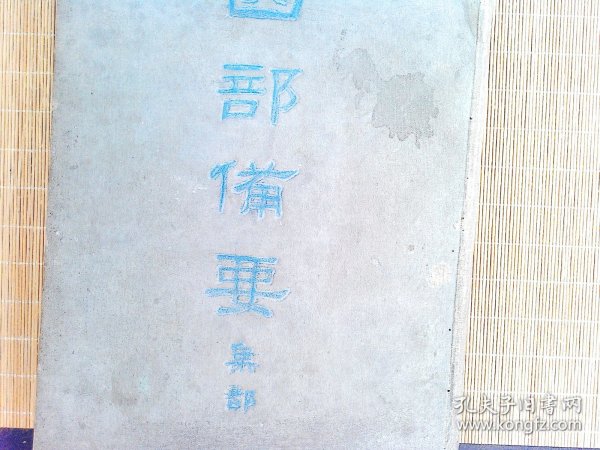 四部備要
集部
孔夫子旧书网
www.kongfz.com